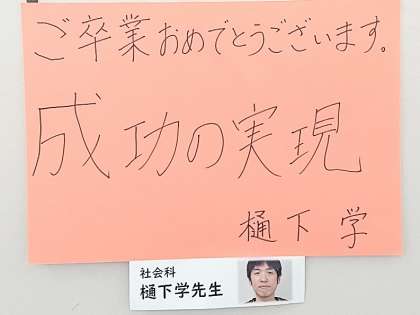 ご卒業おめでとうございます。
成功の実現
樋下学
社会科
樋下学先生